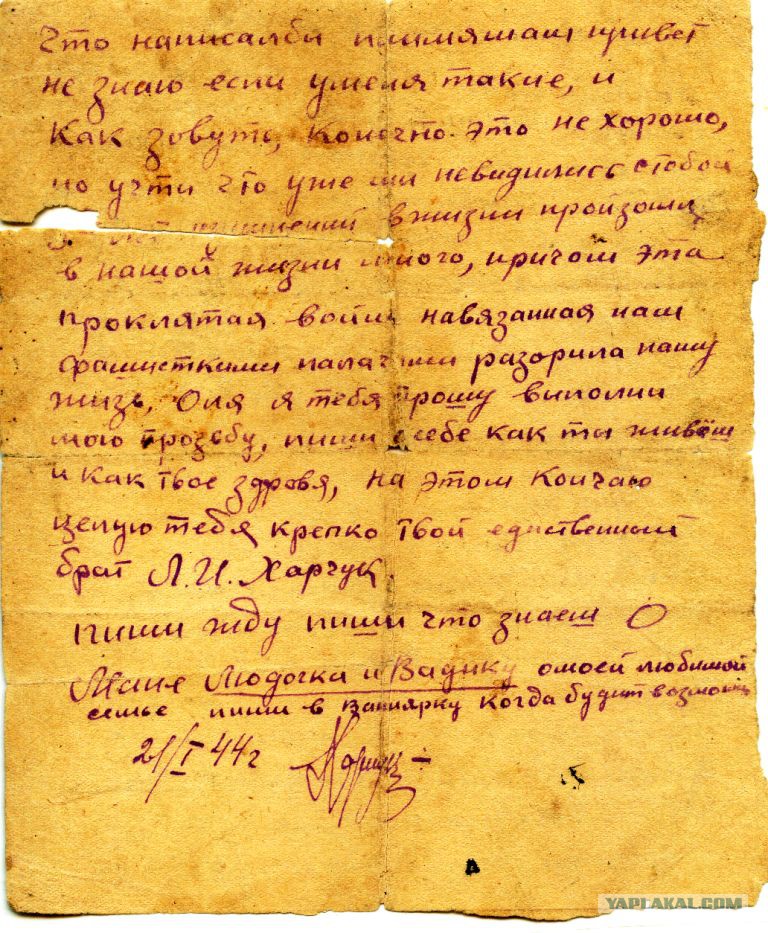 Что написалбы племяшам привет
не знаю если умеля такие, и
как зовуть, конечно это не хорошо,
но учти что уже ми невидились стобой
вжизни произошли
в нашой жизни много, причом эта
проклятая война навязанная нам
фашисткими палачами разорила нашу
жизь, Оля я тебя прошу виполни
мою прозьбу, пиши о себе как ти живёш
и как твое здровя, на этом кончаю
целую тебя крепко твой едиственний
брат Л.И. Харчук.
пиши жду пиши что знаеш О
Мане Людочка и Вадику омоей любимой
семье пиши в Вапнярку когда будит возможн
21/I 44г Харчук
YAPLAKAL.COM